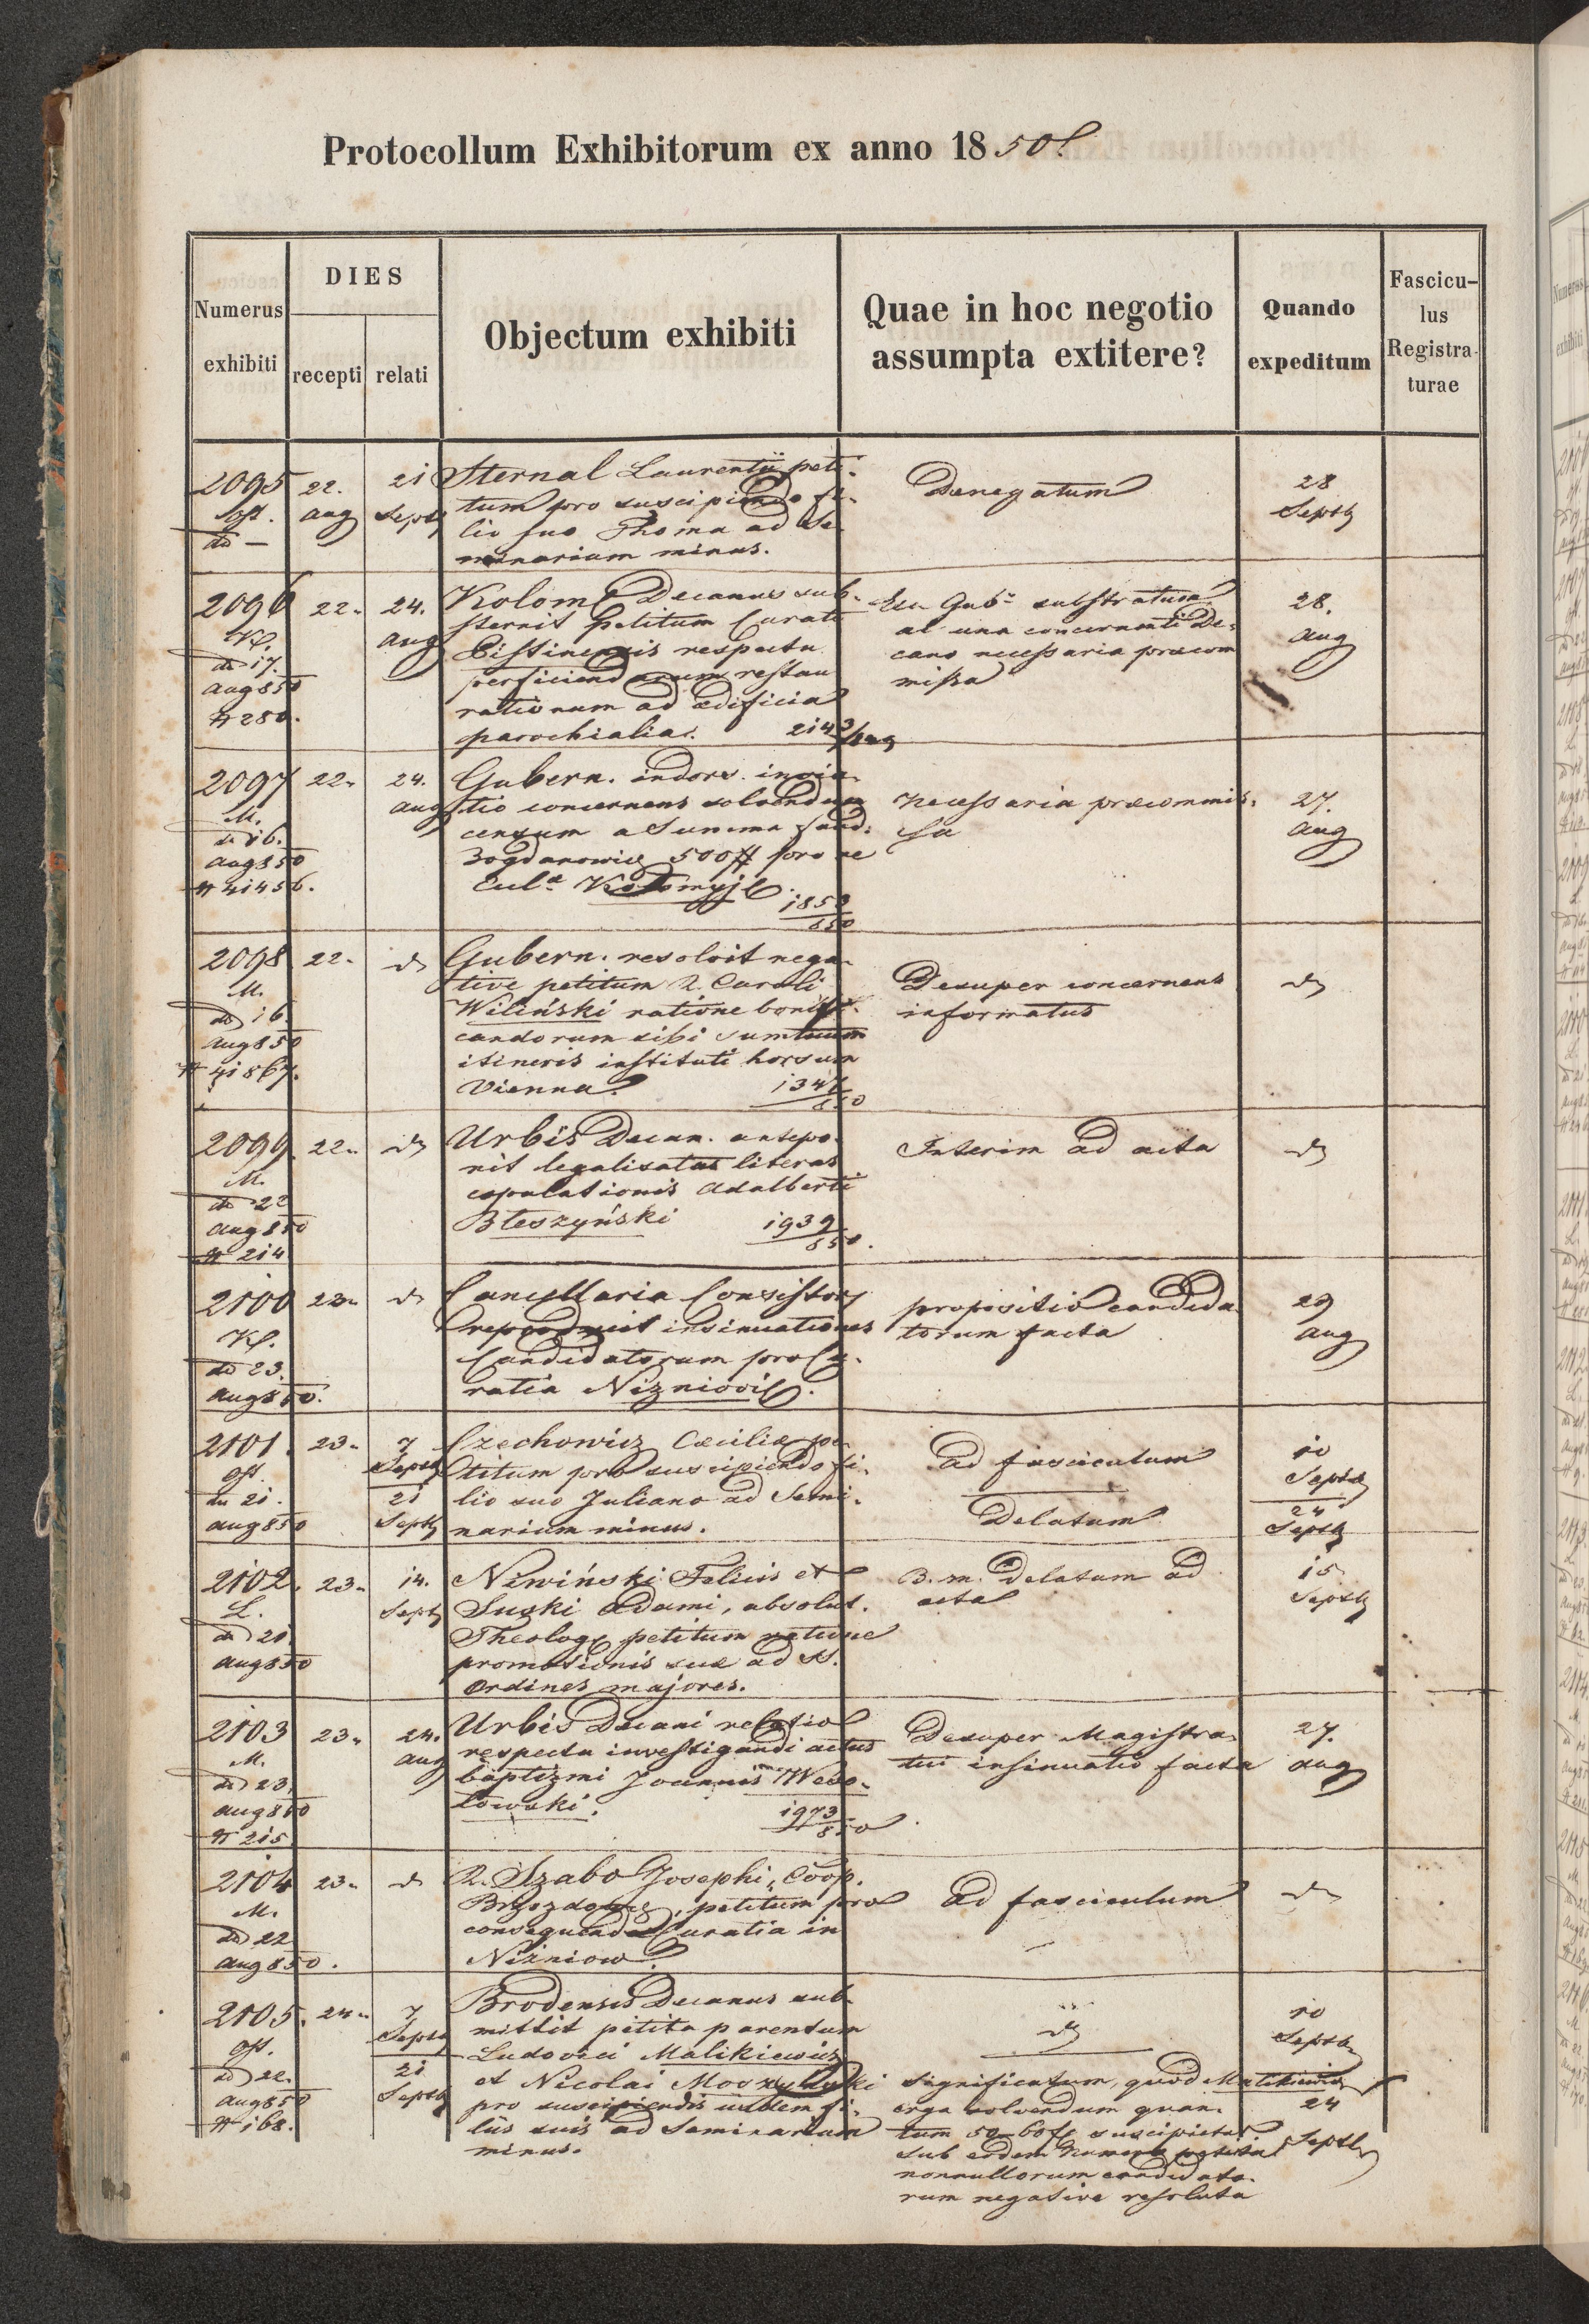 Protocollum Exhibitorum ex anno 1850.
Numerus exhibiti
DIES
recepti
relati
Objectum exhibiti
Quae in hoc negotio assumpta extitere?
Quando expeditum
Fascicu-
lus
Registra-
turae
2095
22.
aug
21
Septb
Sternal Laurentii peti-
tum pro suscipiendo fi-
lio suo Thoma ad Se-
minarium minus.
Denegatum
28
Septb
2096
dd 17.
aug 850
# 280.
22.
24.
aug
Kolom Decanus sub-
sternit petitum Curati
Pistinensis respectu
perficiendarum restau
rationum ad ædificia
parochialia.
Gub. substratum
al una concernenti De-
cano necessaria præcom
missa
28.
aug
2097
M.
dd 16.
aug 850
# 41456.
22.
24.
aug
Gubern. indors. invia-
tio concernens solvendum
censum a Summa fund.
Bogdanowicz 500 # pro
Kołomyje.
1853
850
Necessaria præcommis-
sa
27.
aug
2098
M.
dd 16.
aug 850
# 41867.
22.
d
Gubern. resolvit nega-
tive petitum R. Caroli
Wiliński ratione bonifi-
candorum sibi sumtuum
itineris instituti horsum
Vienna.
1347
850
Desuper concernens
informatus
d
2099.
M.
dd 22
aug 850
# 214
22.
d
Urbis Decan. antepo-
nit legalisatas literas
copulationis Adalberti
Błeszyński
1939
850.
Interim ad acta
d
2100
dd 23.
aug 850.
23.
d
Cancellaria Consistory
insinuationes
Candidatorum pro Cu-
ratia Nizniovi.
propositio candida
torum facta
29
aug
2101.
dd 21.
aug 850
23.
7
Septb
21
Septb
Czechowicz Cæciliæ pe-
titum pro suscipiendo fi-
lio suo Juliano ad Semi-
narium minus.
ad fasciculum
Delatum
10
Septb
24
Septb
2102.
L.
dd 21.
aug 850
23.
14.
Septb
Niwiński Felicis et
Suski Adami, absolut.
Theolog. petitum ratione
promotionis suæ ad SS.
Ordines majores.
B. m. Delatum ad
acta
15
Septb
2103
M.
dd 23.
aug 850
# 215.
23.
24.
aug
Urbis Decani relatio
respectu investigandi actus
baptizmi Joannis Weso-
łowski.
1973
850
Desuper Magistra-
tui insinuatio facta
27.
aug
2104
M.
dd 22
aug 850.
23.
d
R. Szabo Josephi, Coop.
petitum pro
consequenda Curatia in
Niżniow.
Ad fasciculum
d
2105.
dd 22.
aug 850
# 168.
24.
7
Septb
21
Septb
Brodensis Decanus sub-
mittit petita parentum
Ludovici Malikiewicz
et Nicolai
pro suscipiendis iisdem fi-
liis suis ad Seminarium
minus.
d
significatum, quod Malikiewicz
erga solvendum quan-
tum 50-60 f. suscipietur.
sub eodem Numero petita
nonnullorum candidato-
rum negative resoluta
10
Septb
24
Septb